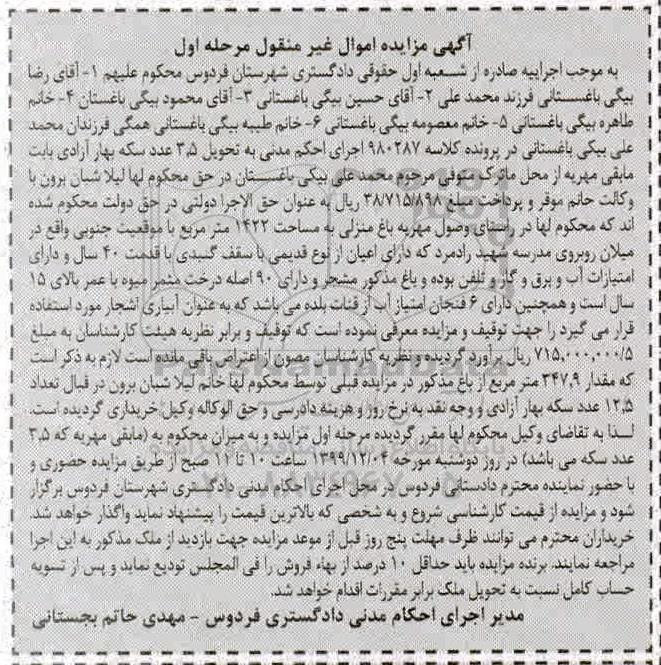 آگهی مزایده اموال غیر منقول مرحله اول
به موجب اجراییه صادره از شعبه اول حقوقی دادگستری شهرستان فردوس محکوم علیهم ۱- آقای رضا
بیگی باغستانی فرزند محمد علی ۲- آقای حسین بیگی باغستانی ۳- آقای محمود بیگی باغستان ۴- خانم
طاهره بیگی باغستانی ۵- خانم معصومه بیگی باغستانی ۶- خانم طیبه بیگی باغستانی همگی فرزندان محمد
علی بیکی باغستانی در پرونده کلاسه ۹۸۰۲۸۷ اجرای احکم مدنی به تحویل ۳٫۵ عدد سکه بهار آزادی بابت
مابقی مهریه از محل ماترک متوفی مرحوم محمد علی بیکی باغستان در حق محکوم لها لیلا شبان برون با
وکالت خانم موقر و پرداخت مبلغ ۳۸/۷۱۵/۸۹۸ ریال به عنوان حق الاجرا دولتی در حق دولت محکوم شده
اند که محکوم لها در راستای وصول مهریه باغ منزلی به مساحت ۱۴۲۲ متر مربع با موقعیت جنوبی واقع در
میلان روبروی مدرسه شهید رادمرد که دارای اعیان از نوع قدیمی با سقف گنبدی با قدمت ۴۰ سال و دارای
امتیازات آب و برق و گاز و تلفن بوده و باغ مذکور مشجر و دارای ۹۰ اصله درخت مثمر میوه با عمر بالای ۱۵
سال است و همچنین دارای ۶ فنجان امتیاز آب از قنات بلده می باشد که به عنوان آبیاری اشجار مورد استفاده
قرار می گیرد را جهت توقیف و مزایده معرفی نموده است که توقیف و برابر نظریه هیئت کارشناسان به مبلغ
۷۱۵,۰۰۰,۰۰۰/۵ ریال برآورد گردیده و نظریه کارشناسان مصون از اعتراض باقی مانده است لازم به ذکر است
که مقدار ۳۴۷٫۹ متر مربع از باغ مذکور در مزایده قبلی توسط محکوم لها خانم لیلا شبان برون در قبال تعداد
۱۲٫۵ عدد سکه بهار آزادی و وجه نقد به نرخ روز و هزینه دادرسی و حق الوکاله وکیل خریداری گردیده است.
لذا به تقاضای وکیل محکوم لها مقرر گردیده مرحله اول مزایده و به میزان محکوم به (مابقی مهریه که ۳٫۵
عدد سکه می باشد) در روز دوشنبه مورخه ۱۳۹۹/۱۲/۰۴ ساعت ۱۰ تا ۱۱ صبح از طریق مزایده حضوری و
با حضور نماینده محترم دادستانی فردوس در محل اجرای احکام مدنی دادگستری شهرستان فردوس برگزار
شود و مزایده از قیمت کارشناسی شروع و به شخصی که بالاترین قیمت را پیشنهاد نماید واگذار خواهد شد.
خریداران محترم می توانند ظرف مهلت پنج روز قبل از موعد مزایده جهت بازدید از ملک مذکور به این اجرا
مراجعه نمایند. برنده مزایده باید حداقل ۱۰ درصد از بهاء فروش را فی المجلس تودیع نماید و پس از تسویه
حساب کامل نسبت به تحویل ملک برابر مقررات اقدام خواهد شد.
مدیر اجرای احکام مدنی دادگستری فردوس - مهدی حاتم بجستانی